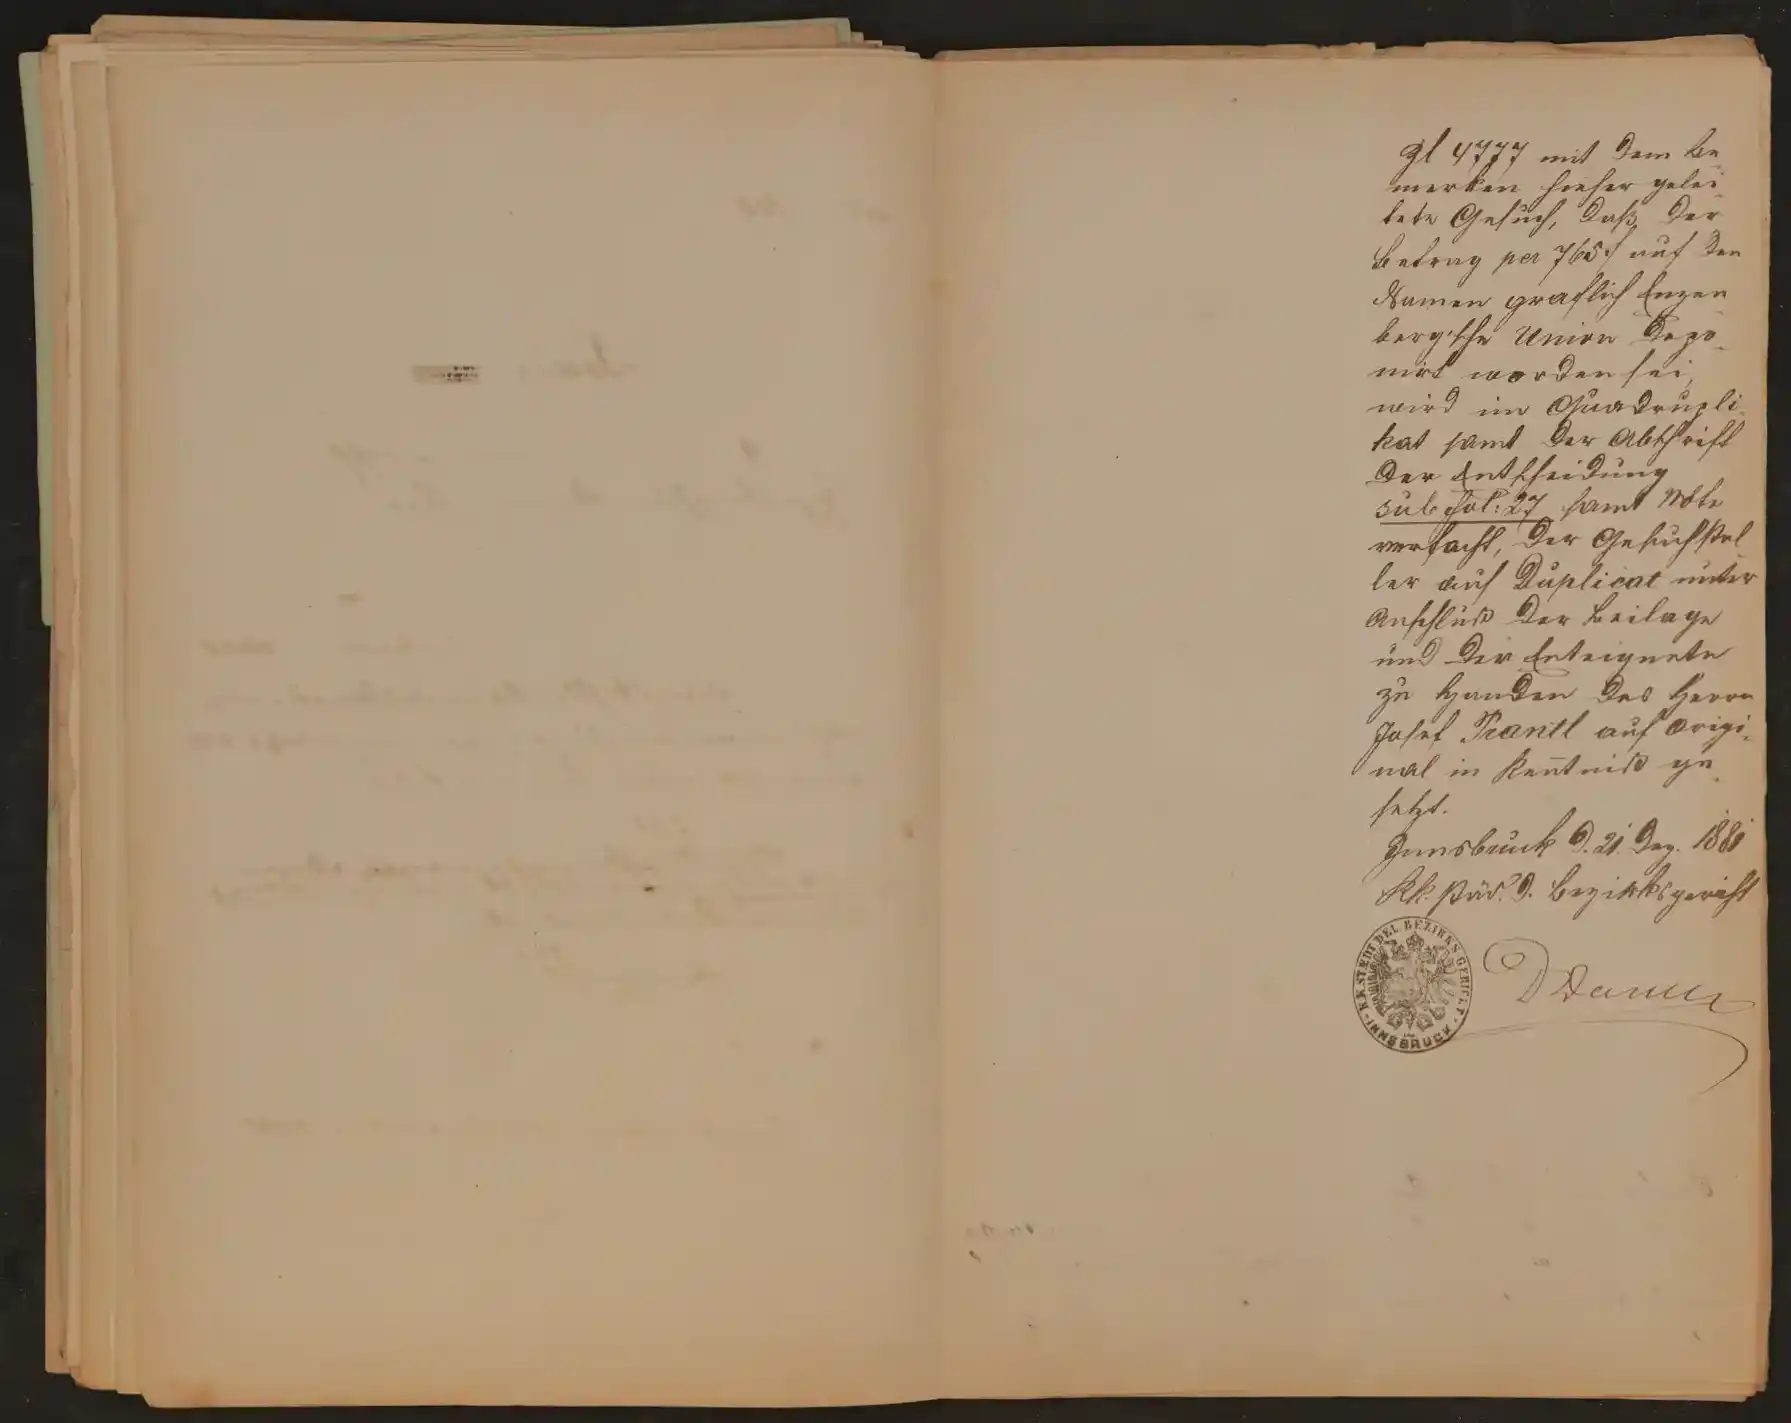 Zl 4777 mit dem Be-
merken hieher gelei-
tete Gesuch, daß der
Betrag per 765 f auf den
Namen graeflich Enzen
berg'sche Union depo-
nirt worden sei,
wird im Quadrupli-
kat samt der Abschrift
der Entscheidung
sub Fol: 27 samt Note
verfacht, der Gesuchstel
ler auf Duplicat unter
Anschluß der Beilage
und die Enteignete
zu Handen des Herrn
Josef Prantl auf Origi-
nal in Kenntniß ge-
setzt.
Innsbruck d. 21. Dez. 1881
KK. städ. d. Bezirksgericht
K.K. STÆDT. DEL. BEZIRKS GERICHT
INNSBRUCK